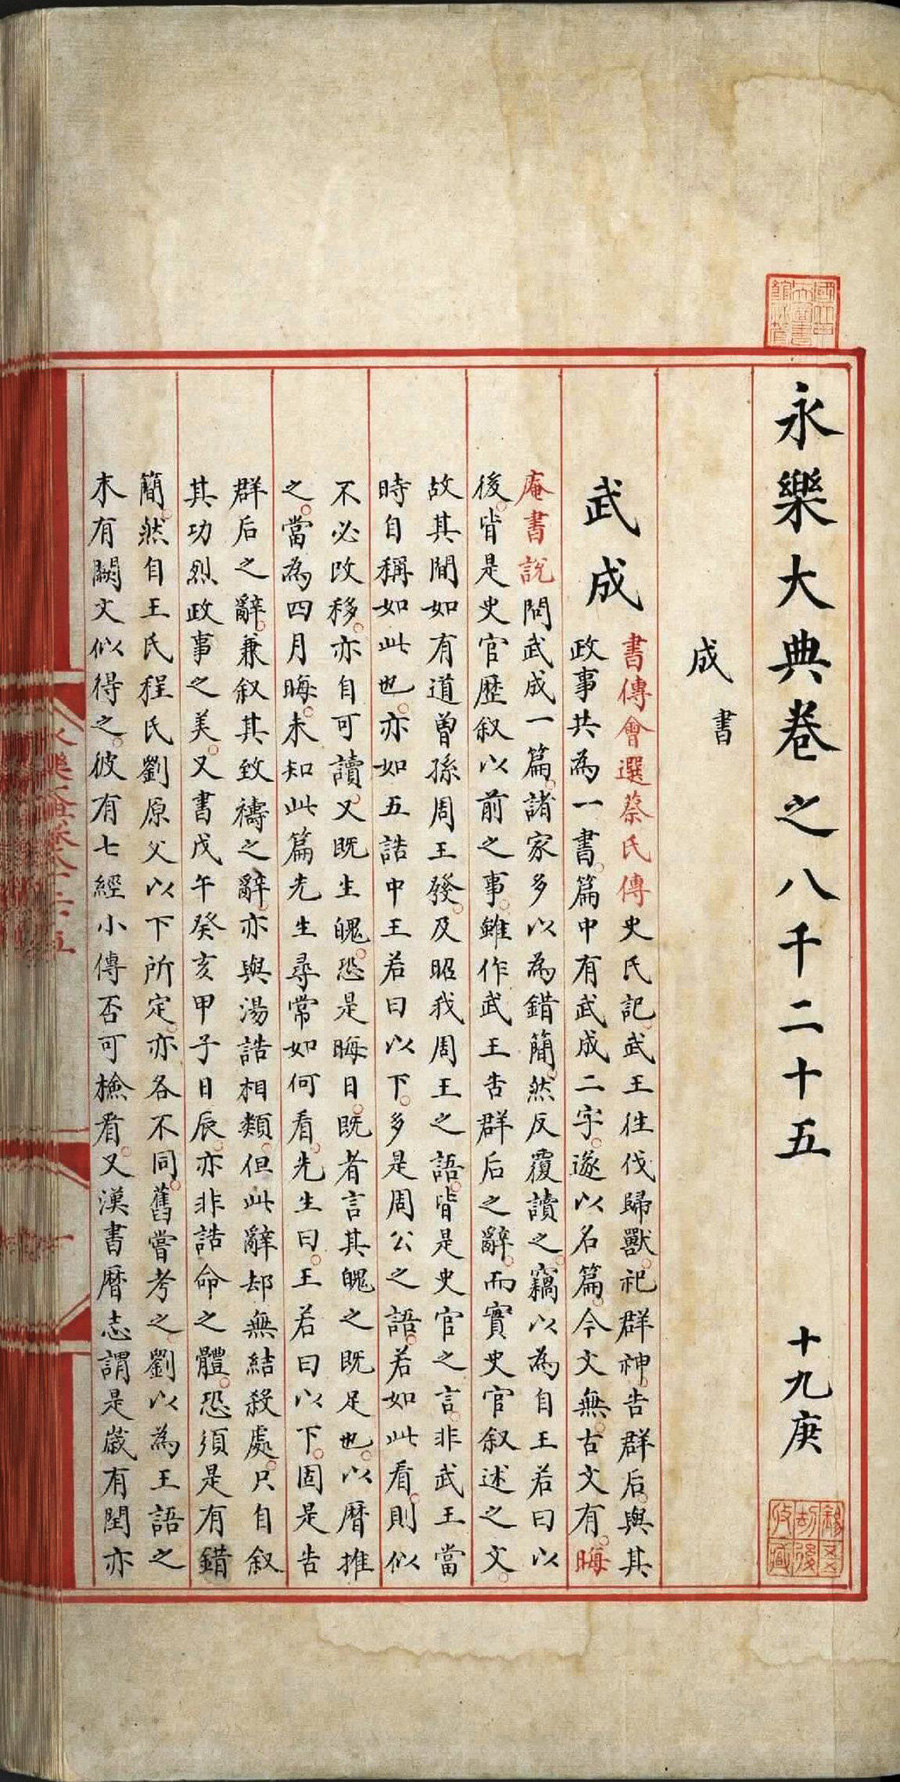 永樂大典卷之八千二十五 十九庚
成 書
武成
書傳會選蔡氏傳史氏記武王往伐歸獸祀群神告群后與其
政事共為一書篇中有武成二字遂以名篇今文無古文有晦
庵書說問武成一篇諸家多以為錯簡然反覆讀之竊以為自王若曰以
後皆是史官歷叙以前之事雖作武王告群后之辭而實史官叙述之文
故其間如有道曾孫周王發及昭我周王之語皆是史官之言非武王當
時自稱如此也亦如五誥中王若曰以下多是周公之語若如此看則似
不必改移亦自可讀又既生魄恐是晦日既者言其魄之既足也以曆推
之當為四月晦未知此篇先生尋常如何看先生曰王若曰以下固是告
群后之辭兼叙其致禱之辭亦與湯誥相類但此辭却無結殺處只自叙
其功烈政事之美又書戊午癸亥甲子日辰亦非誥命之體恐須是有錯
簡然自王氏程氏劉原父以下所定亦各不同舊嘗考之劉以為王語之
末有闕文似得之彼有七經小傳否可檢看又漢書曆志謂是歲有閏亦